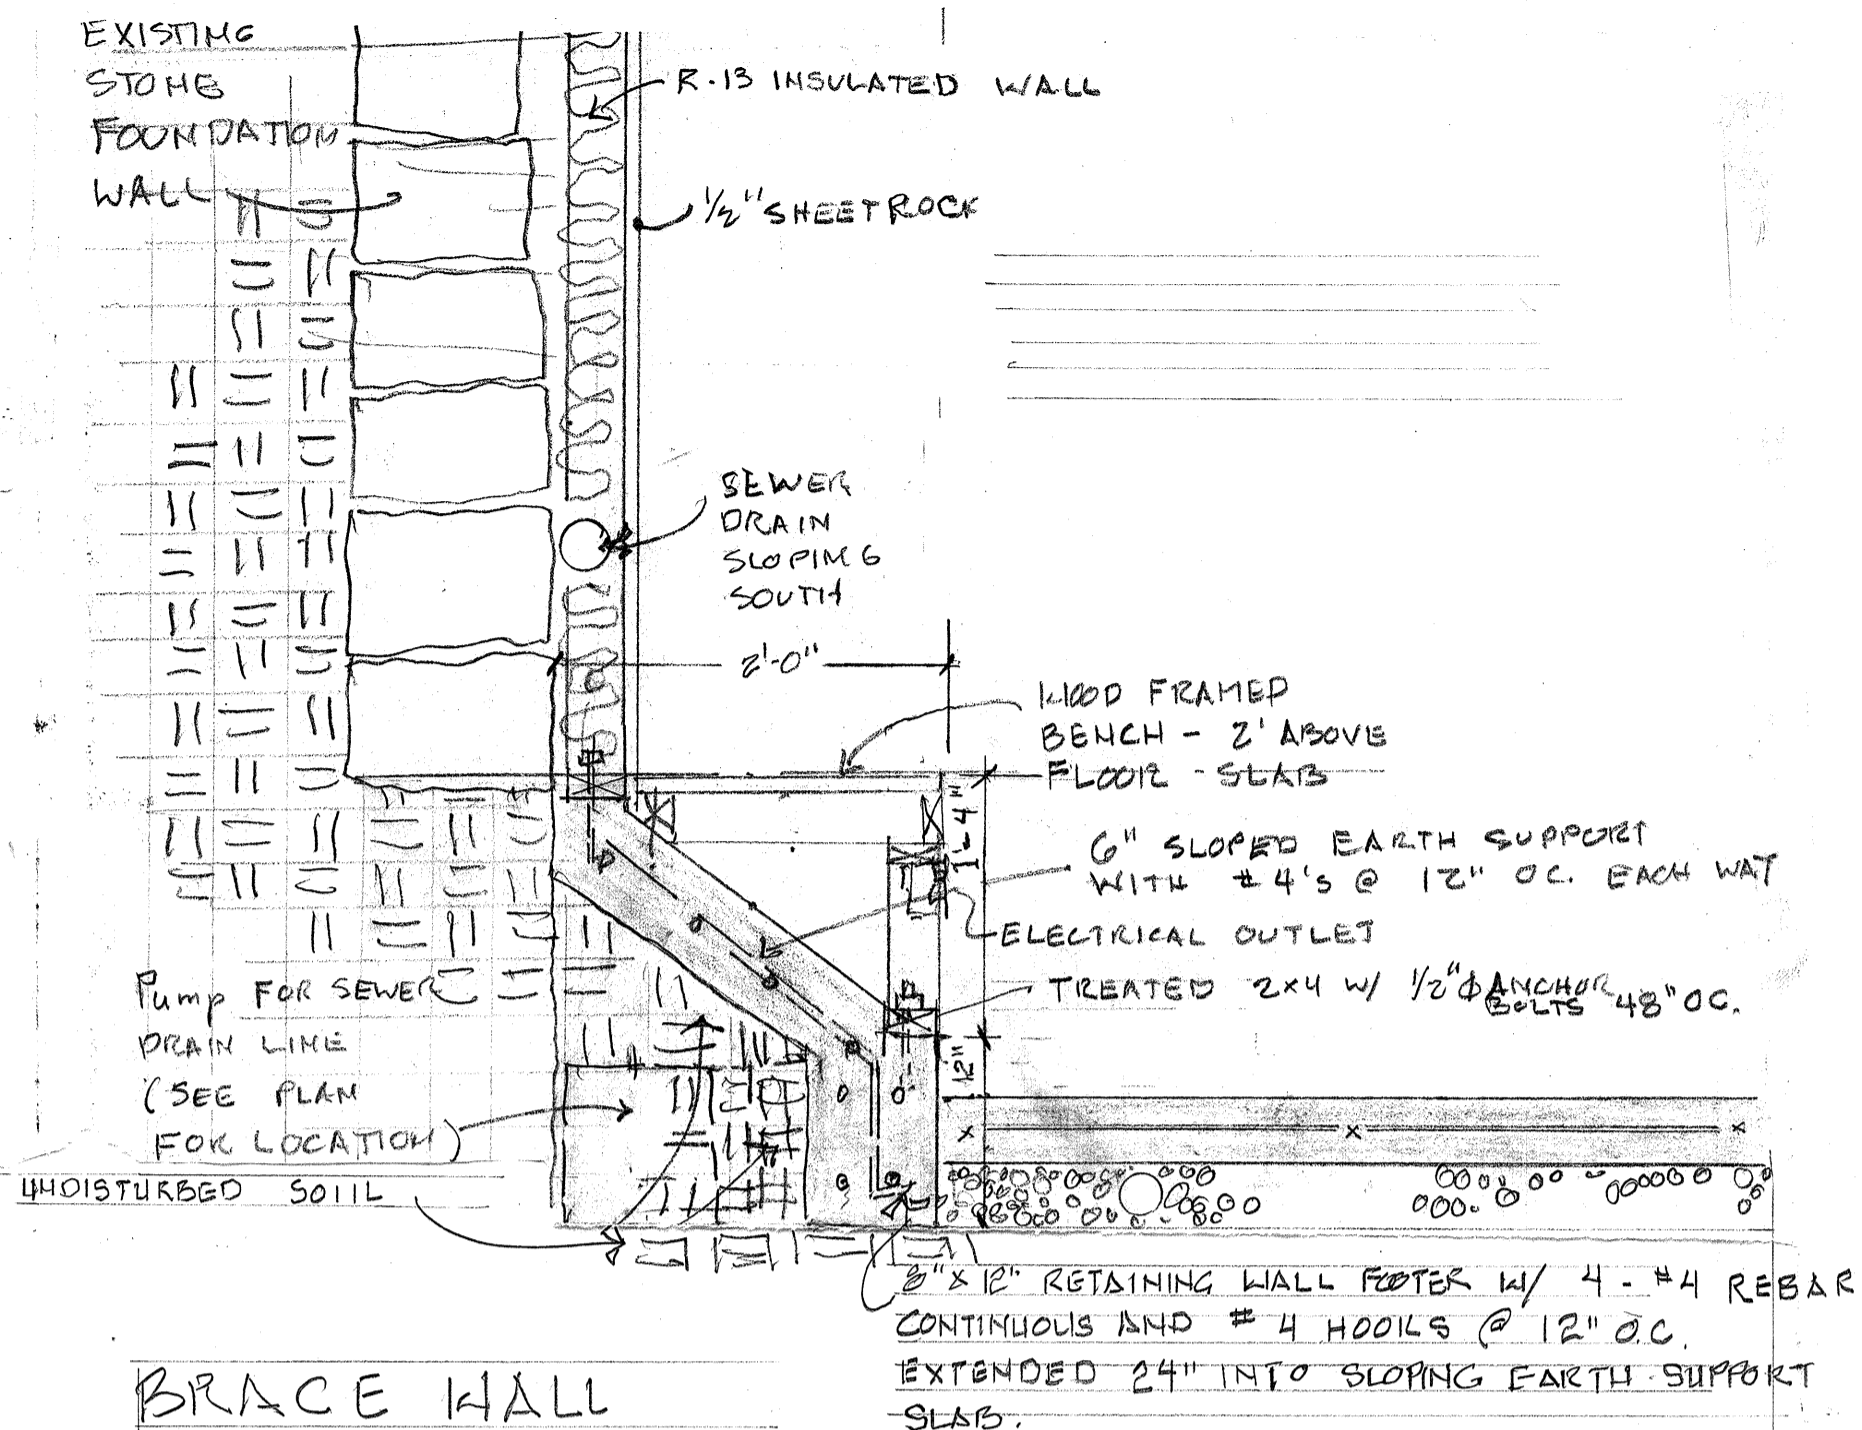 EXISTING
STONE
FOUNDATION
WALL
R-13 INSULATED WALL
1/2" SHEETROCK
SEWER
DRAIN
SLOPING
SOUTH
2'-0"
WOOD FRAMED
BENCH - 2' ABOVE
FLOOR - SLAB
1'-4"
6" SLOPED EARTH SUPPORT
WITH #4'S @ 12" OC. EACH WAY
ELECTRICAL OUTLET
TREATED 2x4 W/ 1/2" Φ ANCHOR
BOLTS 48" OC.
12"
Pump FOR SEWER
DRAIN LINE
(SEE PLAN
FOR LOCATION)
UNDISTURBED SOIIL
8" X 12" RETAINING WALL FOOTER W/ 4 - #4 REBAR
CONTINUOUS AND #4 HOOKS @ 12" O.C.
EXTENDED 24" INTO SLOPING EARTH SUPPORT
SLAB.
BRACE WALL